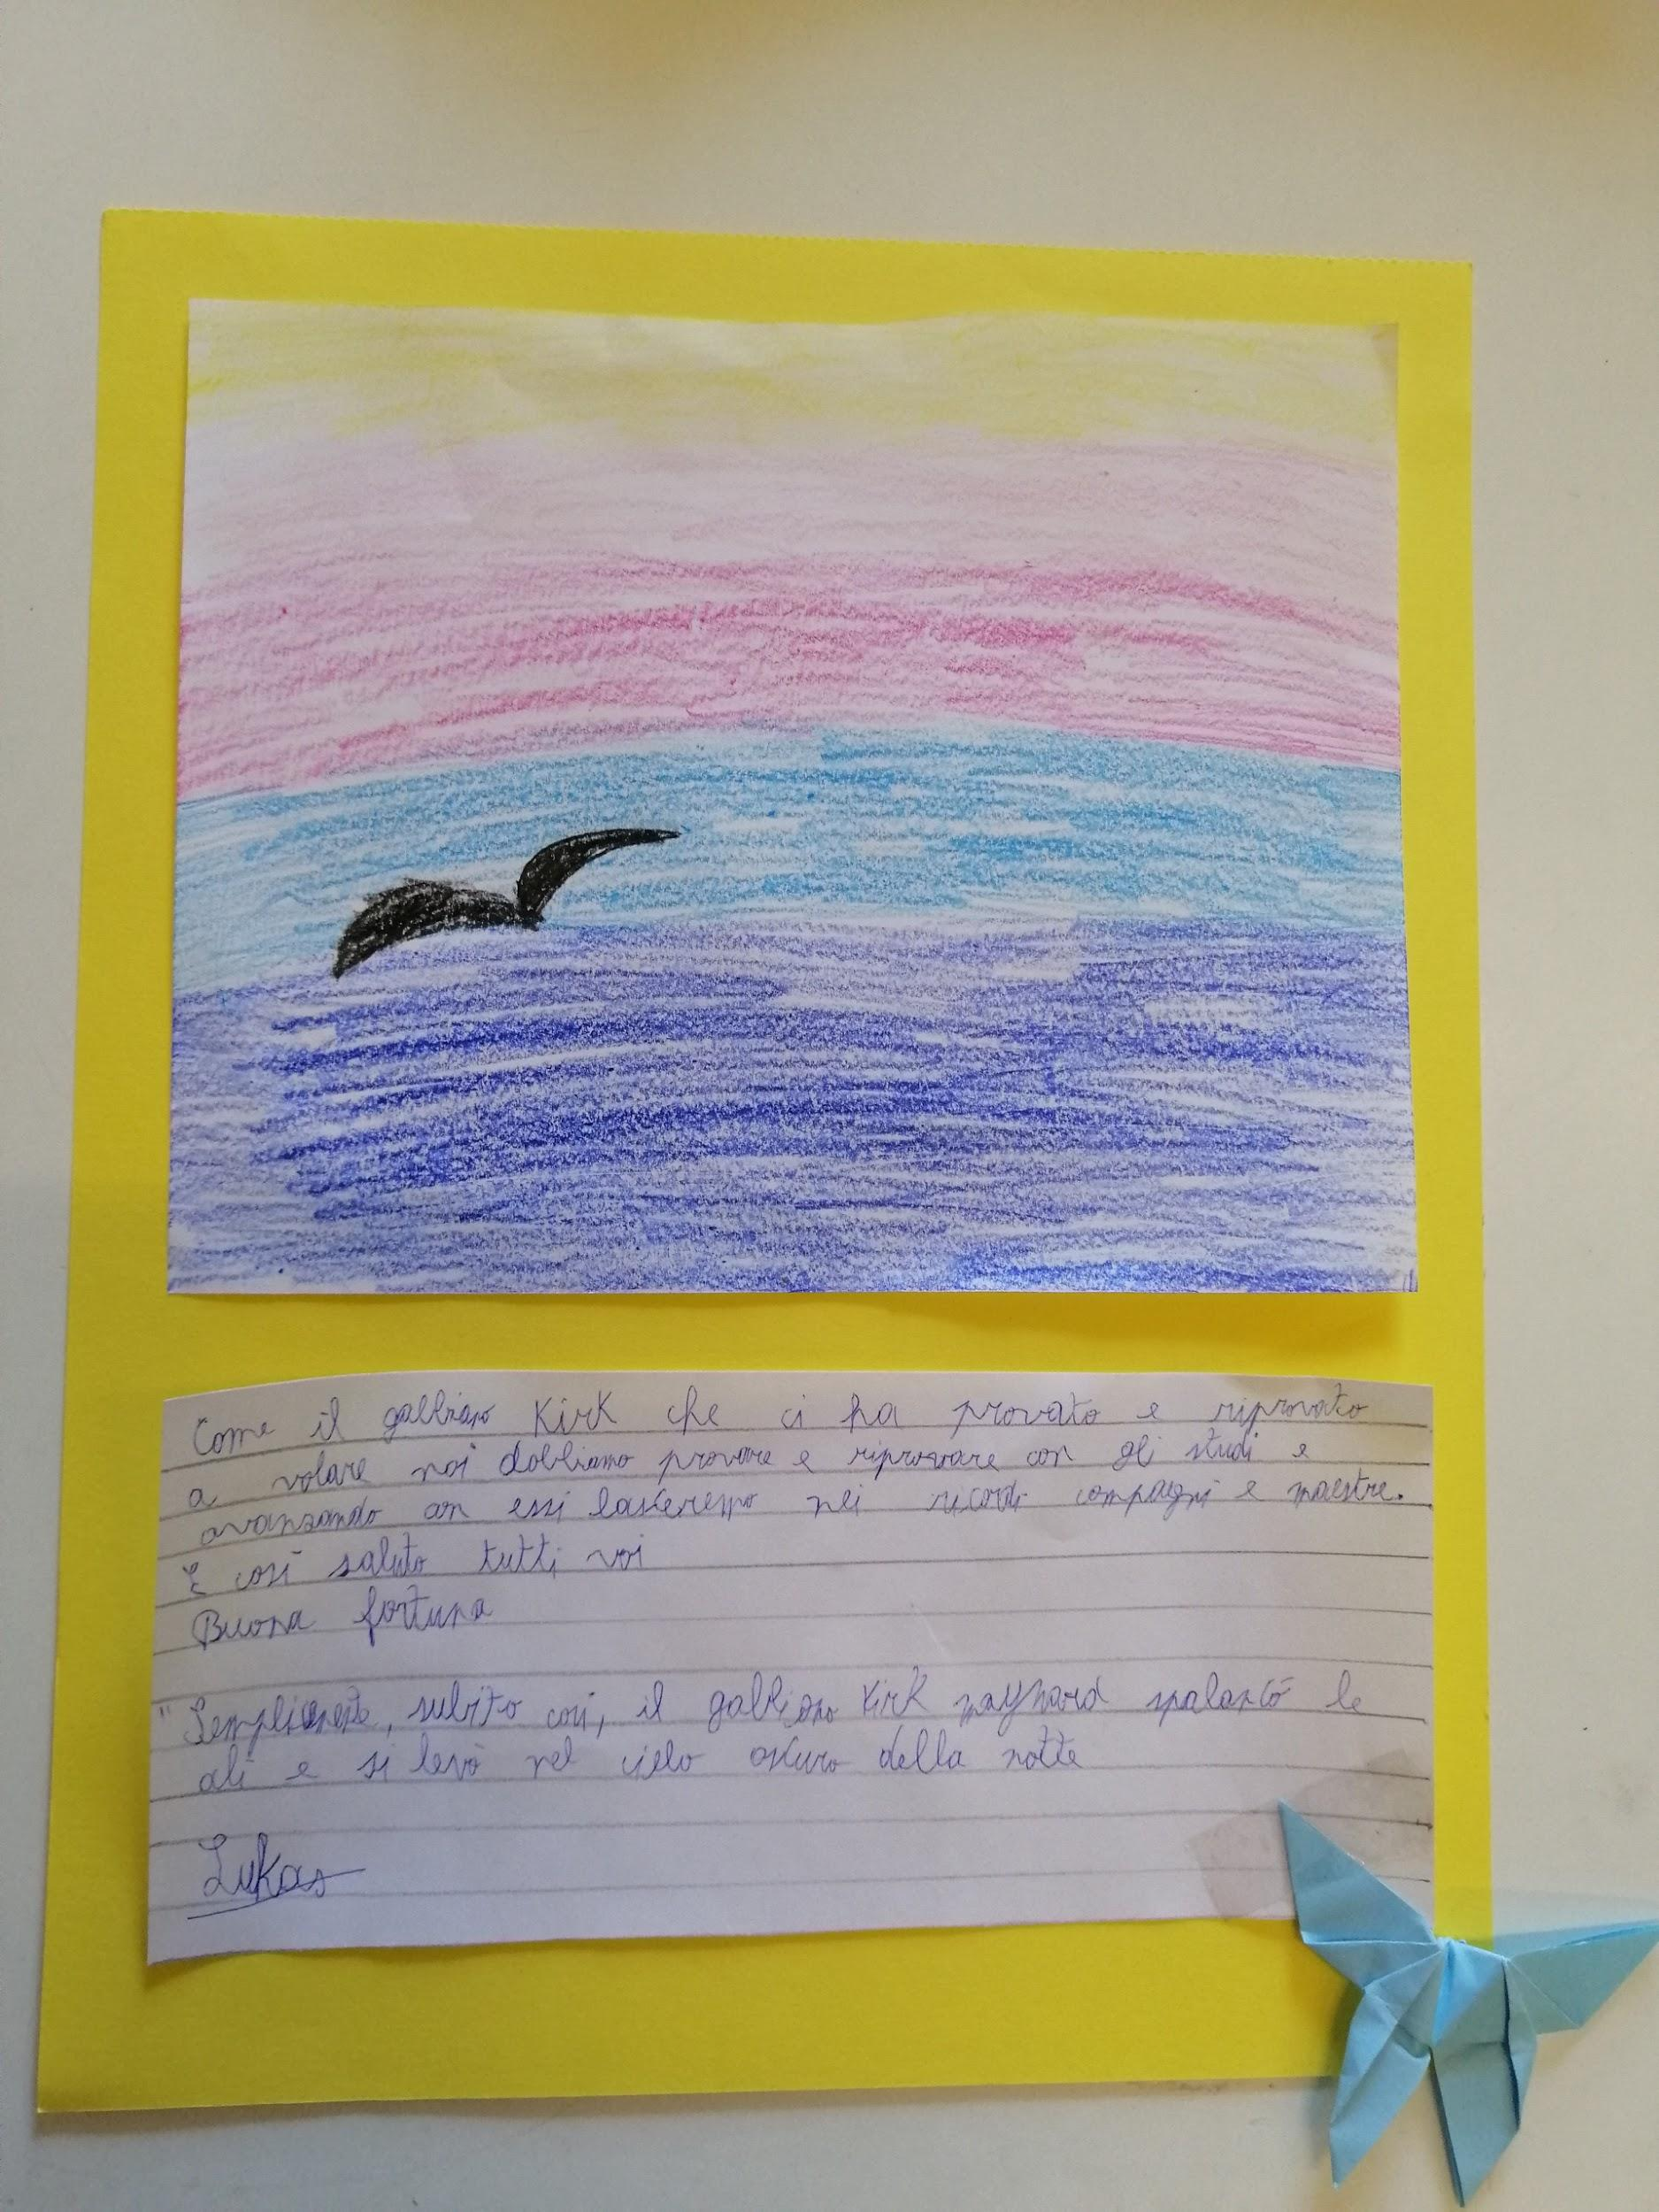 Come il gabbiano Kirk che ci ha provato e riprovato
a volare noi dobbiamo provare e riprovare con gli studi e
avanzando con essi lasceremo nei ricordi compagni e maestre.
E così saluto tutti voi
Buona fortuna
"Semplicemente, subito così, il gabbiano Kirk maynard spalancò le
ali e si levò nel cielo oscuro della notte
Lukas